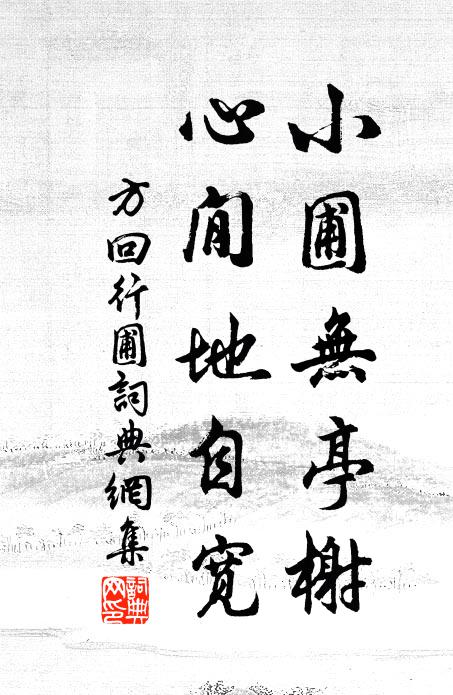 小圃無亭榭
心閒地自寬
方回行圃詞典網集
詞典网印